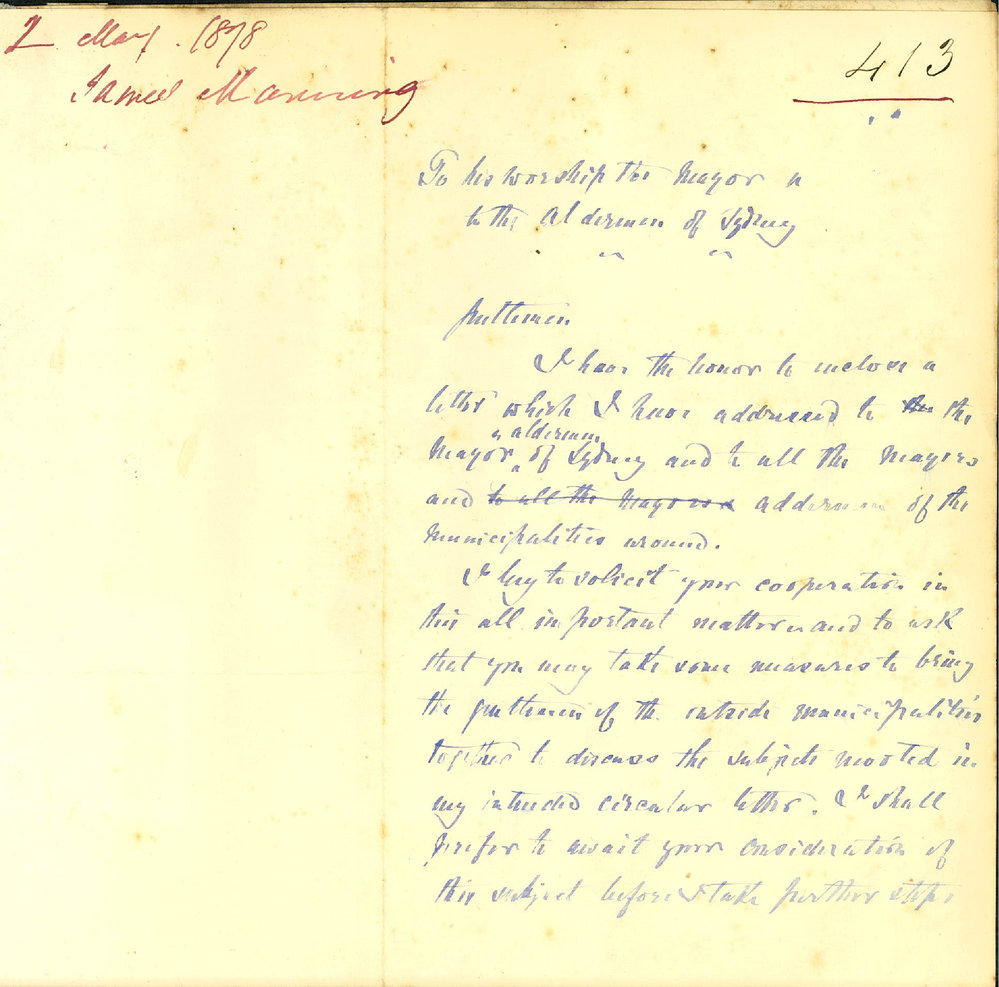 2 May. 1878
James Manning
413
To his worship the Mayor &
to the Aldermen of Sydney
Gentlemen
I have the honor to inclose a
letter which I have addressed to the the
& aldermen
Mayor ^ of Sydney and to all the Mayors
and to all the Mayors & aldermen of the
Municipalities around.
I beg to solicit your cooperation in
this all important matter and to ask
that you may take some measures to bring
the gentlemen of the outside municipalities
together to discuss the subjects mooted in
my intended circular letter. I shall
prefer to await your consideration of
this subject before I take further steps